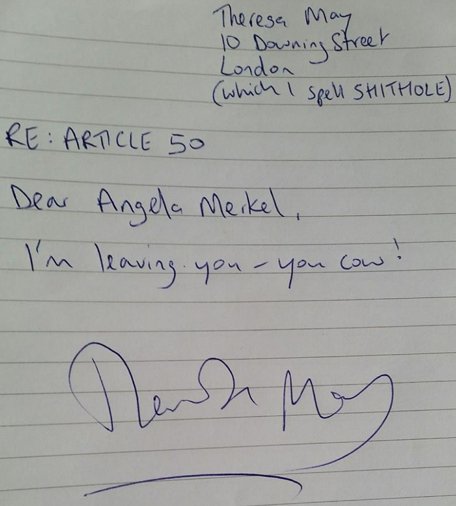 Theresa May
10 Downing Street
London
(which I spell SHITHOLE)
RE: ARTICLE 50
Dear Angela Merkel,
I'm leaving you – you cow!
Theresa May